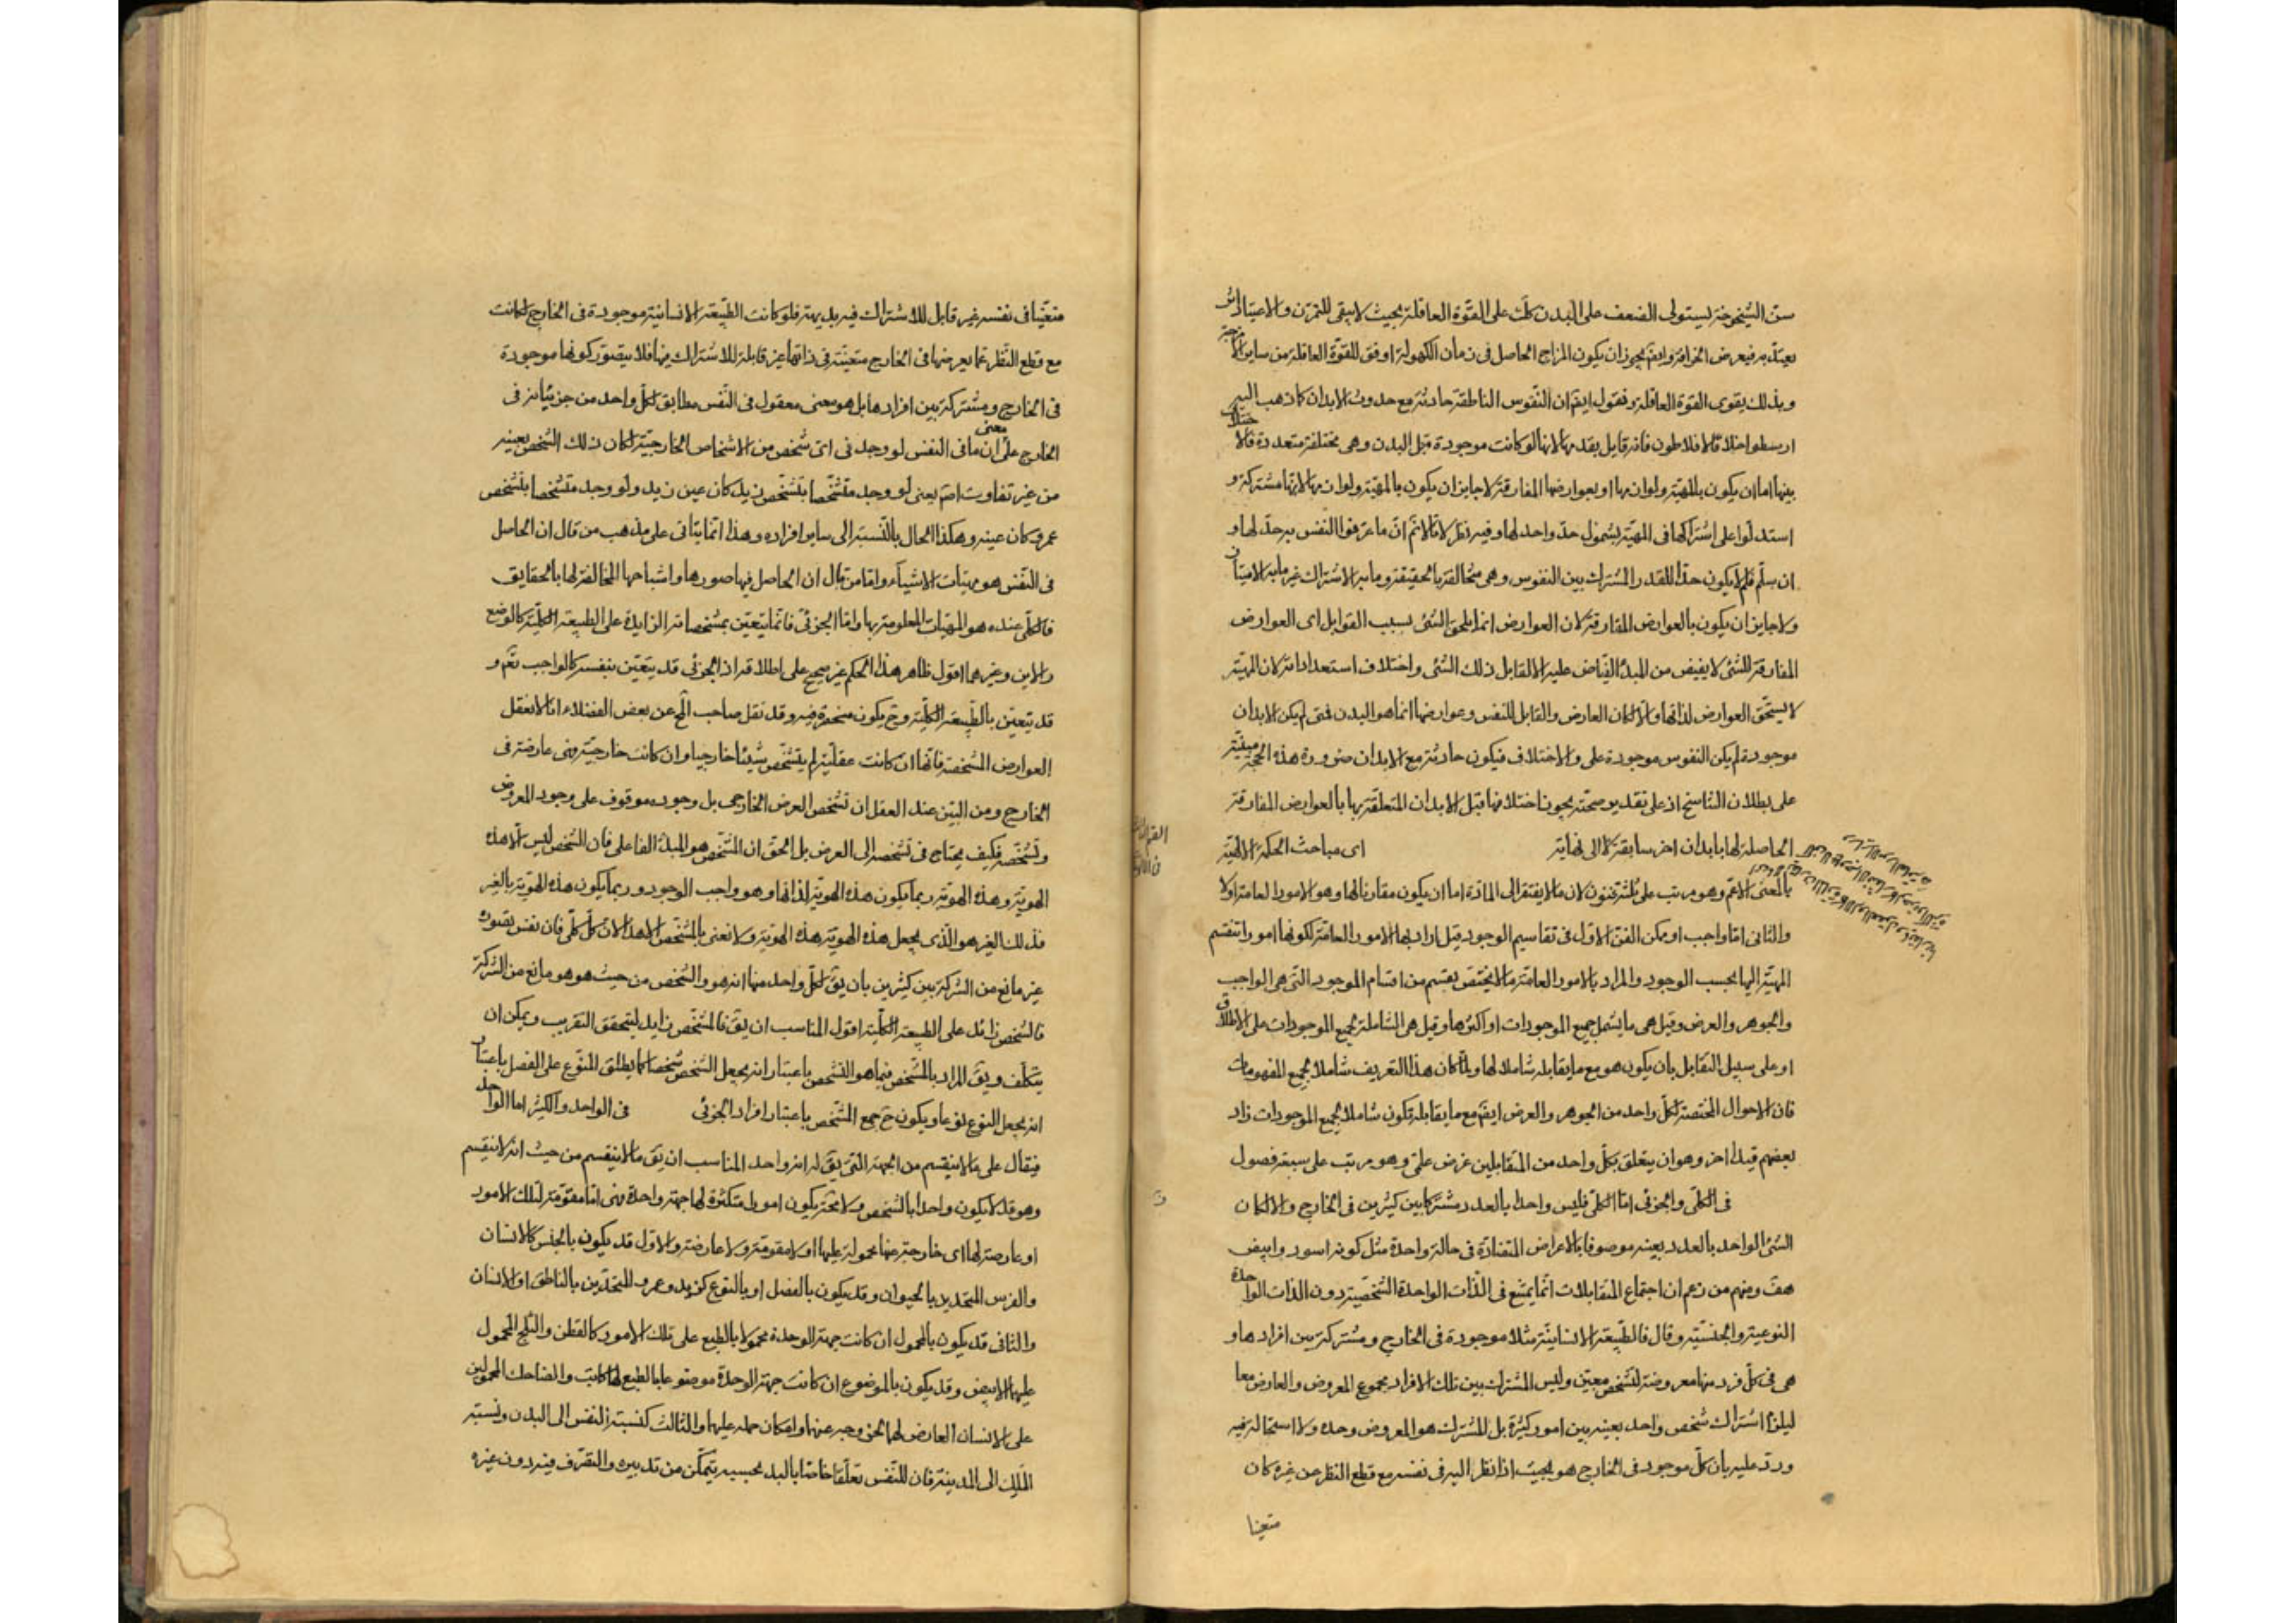 سن الشيخوخة يستولى الضعف على البدن كلّت على القوة العاقلة بحيث لا يبقى للتمرن والاعتياد اثر
يعتد به فيعرض الخرافة وايضَ يجوز ان يكون المزاج الحاصل فى زمان الكهولة اوفق للقوة العاقلة من ساير الامزجة
وبذلك يقوى القوة العاقلة ونقول ايضَ ان النفوس الناطقة حادثة مع حدوث الابدان كما ذهب اليه
ارسطو اخلافا لافلاطون فانه قايل بقدمها لانها لو كانت موجودة قبل البدن وهى مختلفة متعددة فالاختلاف
بينها اما ان يكون بالمهيّة ولوازمها او بعوارضها المفارقة لا جايز ان يكون بالمهيّة ولوازمها لانها مشتركة و
استدلّوا على اشتراكها فى المهيّة بشمول حدّ واحد لها وفيه نظر لانّا لا نمّ انّ ما عرفوا النفس به حدّ لها و
ان سلّم فلم لا يكون حدّا للقدر المشترك بين النفوس وهى متخالفة بالحقيقة وما به الاشتراك غير ما به الامتياز
ولا جايز ان يكون بالعوارض المفارقة لان العوارض انما يلحق الشئ بسبب القوابل اى العوارض
المفارقة للشئ لا يفيض من المبدأ الفياض عليه الا لقابل ذلك الشئ واختلاف استعداداته لان المهيّة
لا يستحق العوارض لذاتها والّا لكان العارض والقابل للنفس وعوارضها انما هو البدن فمتى لم يكن الابدان
موجودة لم يكن النفوس موجودة على والاختلاف فيكون حادثة مع الابدان ضرورة هذه الحجة مبنيّة
على بطلان التناسخ اذ على تقدير صحته يجوز اختلافها قبل الابدان المتعلقة بها بالعوارض المفارقة
الحاصلة لها بابدان اخر سابقة لا الى نهاية اى مباحث الحكمة الالهيّة
بالمعنى الاعمّ وهو مرتب على ثلثة فنون لان ما لا يفتقر الى المادة اما ان يكون مقارنا لها وهو الامور العامة اولا
والثانى امّا واجب او ممكن الفن الاول فى تقاسيم الوجود قيل اراد بها الامور العامة لكونها امورا تنقسم
المهيّة اليها بحسب الوجود والمراد بالامور العامة ما لا يختصّ بقسم من اقسام الموجود التى هى الواجب
والجوهر والعرض وقيل هى ما يشمل جميع الموجودات او اكثرها وقيل هى الشاملة لجميع الموجودات على الاطلاق
او على سبيل التقابل بان يكون هو مع ما يقابله شاملا لها ولمّا كان هذا التعريف شاملا لجميع المفهومات
فان الاحوال المختصة لكل واحد من الجوهر والعرض ايضَ مع ما يقابله تكون شاملا لجميع الموجودات زاد
بعضهم قيدا اخر وهو ان يتعلق بكلّ واحد من المتقابلين غرض علمىّ وهو مرتب على سبعة فصول
فى الكلّى والجزئى امّا الكلّى فليس واحدا بالعدد مشتركا بين كثيرين فى الخارج والا لكان
الشئ الواحد بالعدد بعينه موصوفا بالاعراض المتضادّة فى حالة واحدة مثل كونه اسود وابيض
هفَ ومنهم من زعم ان اجتماع المتقابلات انّما يمتنع فى الذّات الواحدة الشخصيّة دون الذات الواحدة
النوعية والجنسيّة وقال فالطبيعة الانسانيّة مثلا موجودة فى الخارج ومشتركة بين افرادها و
هى فى كلّ فرد منها معروضة لتشخص معيّن وليس المشترك بين تلك الافراد مجموع المعروض والعارض معا
ليلزم اشتراك شخص واحد بعينه بين امور كثيرة بل المشترك هو المعروض وحده ولا استحالة فيه
وردّ عليه بان كلّ موجود فى الخارج هو بحيث اذا نظر اليه فى نفسه مع قطع النظر عن غيره كان
متعينا
متعيّنا فى نفسه غير قابل للاشتراك فيه بديهة فلو كانت الطبيعة الانسانية موجودة فى الخارج لكانت
مع قطع النظر عما يعرضها فى الخارج متعيّنة فى ذاتها غير قابلة للاشتراك فيها فلا يتصوّر كونها موجودة
فى الخارج ومشتركة بين افرادها بل هو معنى معقول فى النفس مطابق لكل واحد من جزئياته فى
الخارج على معنى ان ما فى النفس لو وجد فى اى شخص من الاشخاص الخارجيّة لكان ذلك الشخص بعينه
من غير تفاوت اصَ يعنى لو وجد متشخّصا بتشخّص زيد كان عين زيد ولو وجد متشخصا بتشخص
عمرو كان عينه وهكذا الحال بالنّسبة الى ساير افراده وهذا انما يتأتى على مذهب من قال ان الحاصل
فى النّفس هو مهيّات الاشياء وامّا من قال ان الحاصل فيها صورها واشباحها المخالفة لها بالحقايق
فالكلّى عنده هو المهيّات المعلومة بها وامّا الجزئى فانّما يتعيّن بمشخصاته الزايدة على الطبيعة الكليّة كالوضع
والاين وغيرهما اقول ظاهر هذا الحكم غير صحيح على اطلاقه اذ الجزئى قد يتعيّن بنفسه كالواجب تعَم و
قد يتعيّن بالطّبيعة الكليّة وحَ يكون منحصرة فيه وقد نقل صاحب المح عن بعض الفضلاء انّا لا نعقل
العوارض المشخصة فانها ان كانت عقليّة لم يتشخّص شيئا خارجيا وان كانت خارجيّة فهى عارضة فى
الخارج ومن البيّن عند العقل ان تشخص العرض الخارجى بل وجوده موقوف على وجود المعروض
وتشخصه فكيف يحتاج فى تشخصه الى العرض بل الحق ان المشخّص هو المبدأ الفاعلى فان الشخص ليس الّا هذه
الهويّة وهذه الهوية ربما يكون هذه الهوية لذاتها وهو واجب الوجود وربما يكون هذه الهويّة بالغير
فذلك الغير هو الّذى يجعل هذه الهوية هذه الهوية ولا نعنى بالمشخّص الا هذا لانّ كل كلّى فان نفس تصوره
غير مانع من الشركة بين كثيرين بان يقَ لكلّ واحد منها انه هو والشخص من حيث هو هو مانع من الشركة
فالشخص زائد على الطبيعة الكليّة اقول المناسب ان يقَ فالمشخّص زايد ليتحقق التقريب ويمكن ان
يتكلّف ويقَ المراد بالمشخّص فيما هو التشخص باعتبار انه يجعل الشخص شخصا كما يطلق المنوّع على الفصل باعتبار
انه يجعل النوع نوعا ويكون حَ جمع المشّخص باعتبار افراد الجزئى فى الواحد والكثير اما الواحد
فيقال على ما لا ينقسم من الجهة التى يقَ له انه واحد المناسب ان يقَ ما لا ينقسم من حيث انه لا ينقسم
وهو قد لا يكون واحدا بالشخص ولا محَة يكون امورا متكثرة لها جهة واحدة فهى امّا مقوّمة لتلك الامور
او عارضة لها اى خارجة عنها محمولة عليها او لا مقومة ولا عارضة والاول قد يكون بالجنس كالانسان
والفرس المتحدين بالحيوان وقد يكون بالفصل او بالنوع كزيد وعمرو المتحدين بالناطق او الانسان
والثانى قد يكون بالمحمول ان كانت جهة الوحدة محمولا بالطبع على تلك الامور كالقطن والثلج المحمول
عليهما الابيض وقد يكون بالموضوع ان كانت جهة الوحدة موضوعا بالطبع لها كالكاتب والضاحك المحمولين
على الانسان العارض لهما لخروجه عنهما وامكان حمله عليهما والثالث كنسبة النفس الى البدن ونسبة
الملك الى المدينة فان للنّفس تعلّقا خاصّا بالبدن بحسبه يتمكّن من تدبيره والتصّرف فيه دون غيره